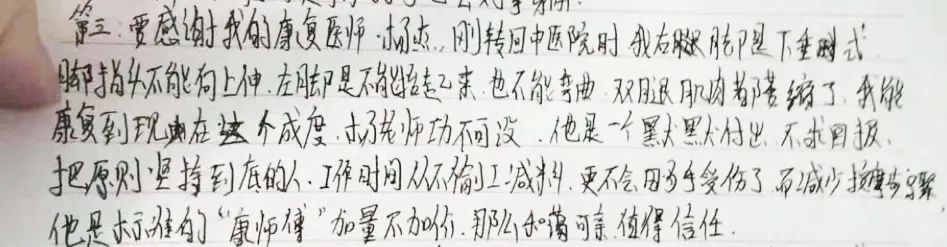 第三:要感谢我的康复医师·杨杰,刚转回中医院时 我右腿脚是下垂式
脚指头不能向上伸.左脚是不能抬起来.也不能弯曲.双腿肌肉都萎缩了.我能
康复到现在这个成度.杨老师功不可没.他是一个默默付出.不求回报.
把原则坚持到底的人.工作时间从不偷工减料.更不会因为手受伤了而减少按摩步骤.
他是标准的“康师傅”加量不加价.那么和蔼可亲.值得信任.